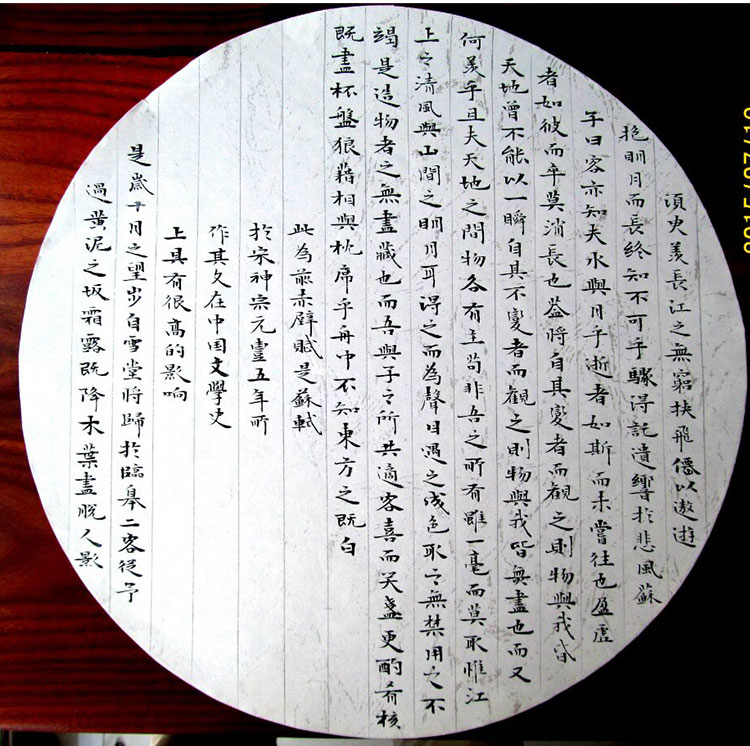 須臾羨長江之無窮扶飛僊以遨遊
抱明月而長終知不可乎驟得託遺響於悲風蘇
子曰客亦知夫水與月乎逝者如斯而未嘗往也盈虛
者如彼而卒莫消長也蓋將自其變者而觀之則物與我皆
天地曾不能以一瞬自其不變者而觀之則物與我皆無盡也而又
何羨乎且夫天地之間物各有主苟非吾之所有雖一毫而莫取惟江
上之清風與山間之明月耳得之而為聲目遇之成色取之無禁用之不
竭是造物者之無盡藏也而吾與子之所共適客喜而笑盞更酌肴核
既盡杯盤狼藉相與枕席乎舟中不知東方之既白
此為前赤壁賦是蘇軾
於宋神宗元豐五年所
作其文在中国文學史
上具有很高的影响
是歲十月之望步自雪堂將歸於臨皋二客從予
過黃泥之坂霜露既降木葉盡脫人影